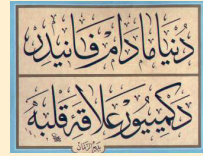 دنيا مادام فانيدر
دكمييور علاقة قلبه